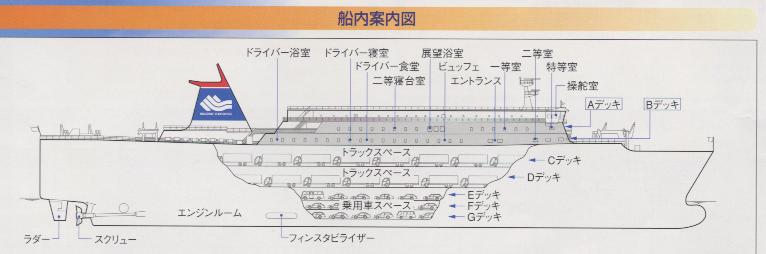 船内案内図
ドライバー浴室
ドライバー寝室
展望浴室
二等室
ドライバー食堂
ビュッフェ
一等室
特等室
二等寝台室
エントランス
操舵室
Aデッキ
Bデッキ
トラックスペース
Cデッキ
トラックスペース
Dデッキ
Eデッキ
乗用車スペース
Fデッキ
Gデッキ
エンジンルーム
ラダー
スクリュー
フィンスタビライザー